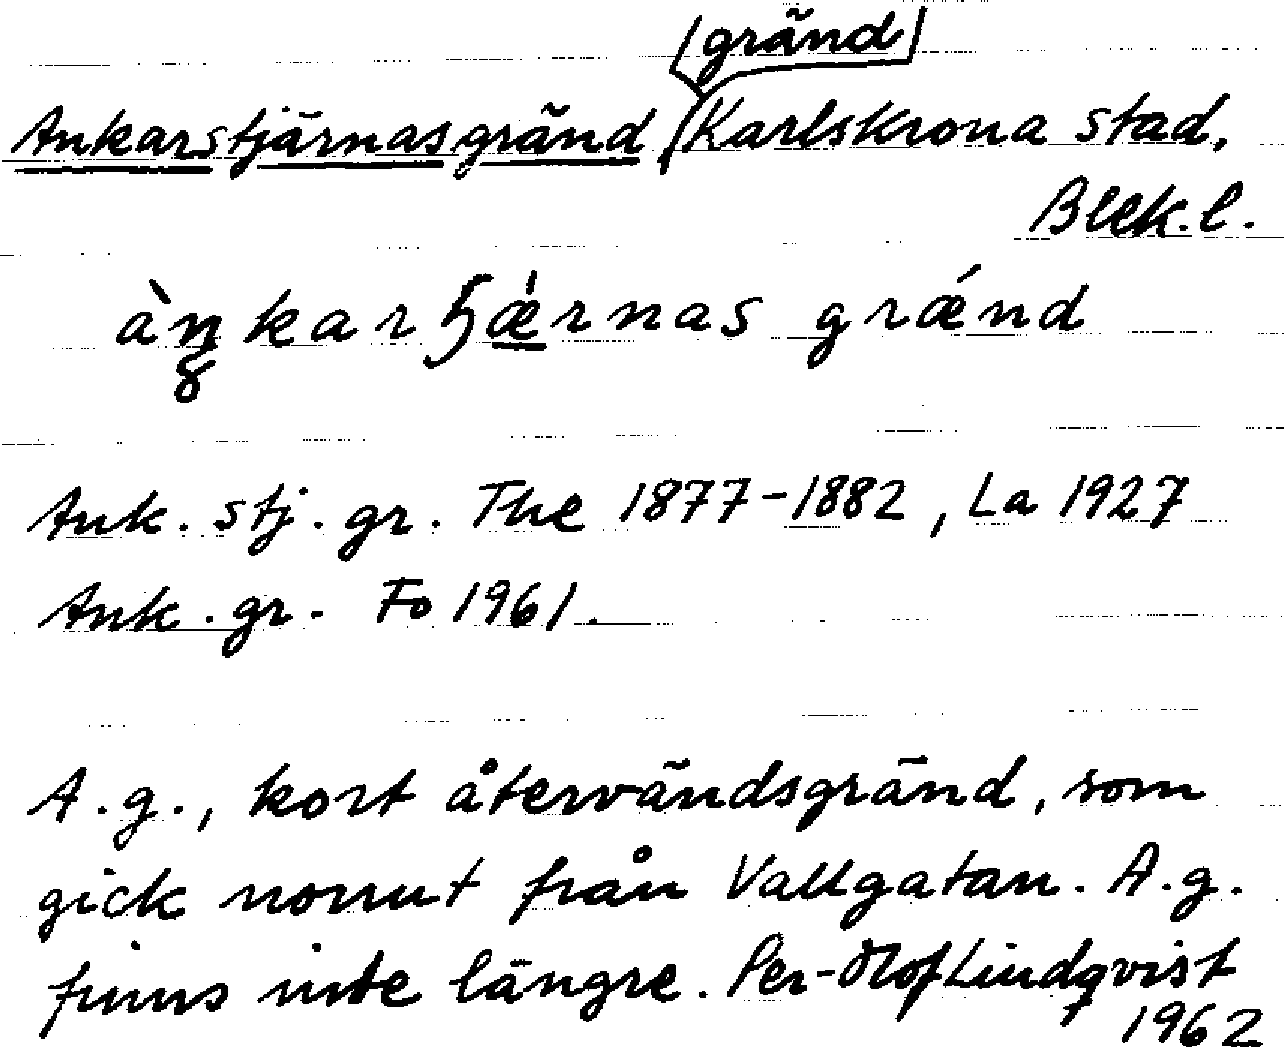 (gränd)
Ankarstjärnasgränd / Karlskrona stad.
Blek. l.
gränd
Ank. stj. gr. The 1877-1882, La 1927
Ank. gr. Fo 1961.
A. g., kort återvändsgränd, som
gick norrut från Vallgatan. A. g.
finns inte längre. Per-Olof Lindqvist
1962